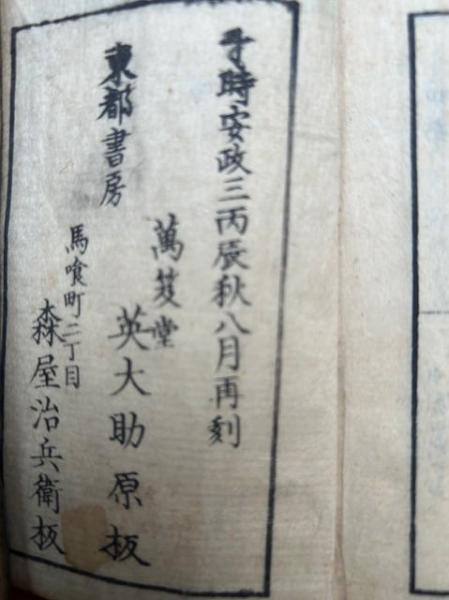 于時安政三丙辰秋八月再刻
東都書房
萬笈堂
英大助原板
馬喰町二丁目
森屋治兵衛板